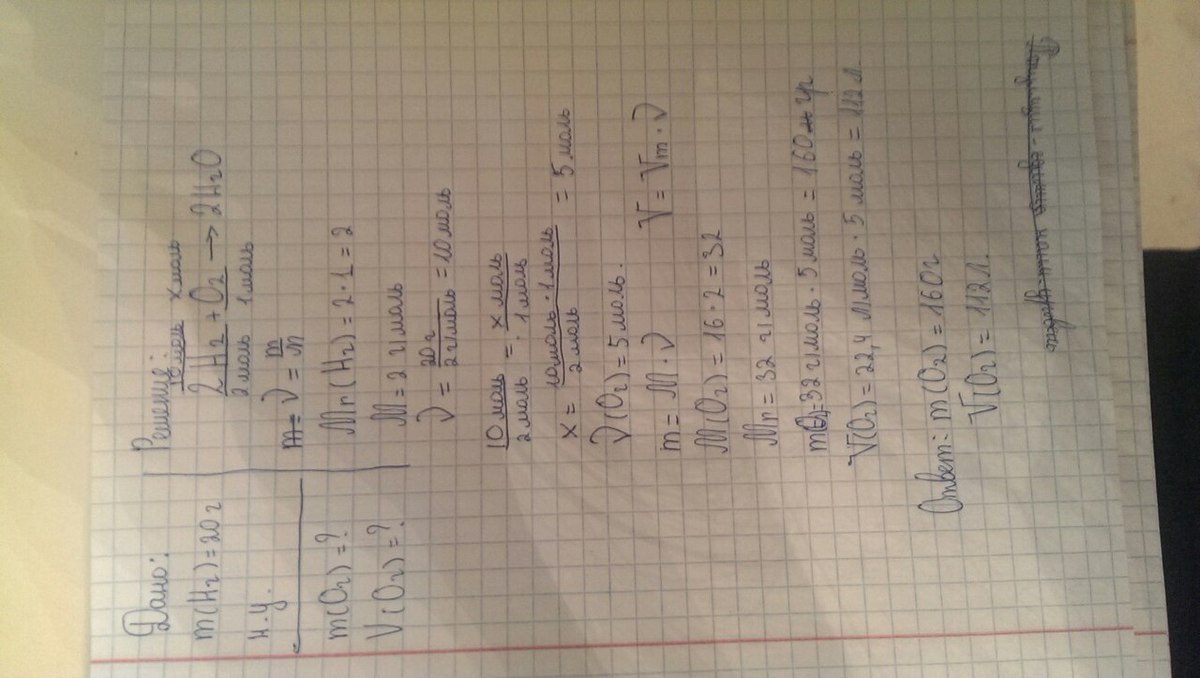 Дано:
m(H2)=20г
н.у.
m(O2)=?
V(O2)=?
Решение:
10моль xмоль
2H2+O2→2H2O
2моль 1моль
m= ν=m/M
Mr(H2)=2·1=2
M=2г/моль
ν=20г/2г/моль=10моль
10моль/2моль=xмоль/1моль
x=10моль·1моль/2моль=5моль
ν(O2)=5моль.
m=M·ν V=Vm·ν
M(O2)=16·2=32
Mr=32г/моль
m(O2)=32г/моль·5моль=160гр
V(O2)=22,4л/моль·5моль=112л.
Ответ: m(O2)=160г
V(O2)=112л.